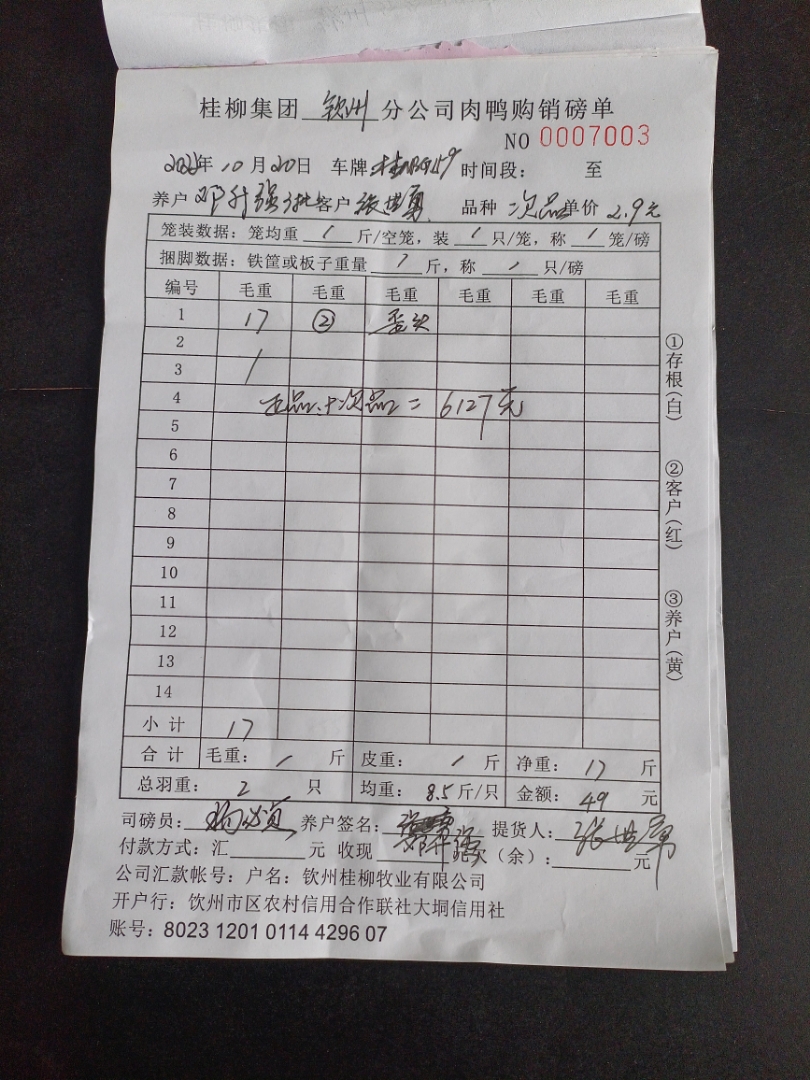 桂柳集团 钦州 分公司肉鸭购销磅单
NO 0007003
年 10 月 20 日 车牌: 桂 时间段: 至
养户 邓升强 客户 张世勇 品种 次品 单价 2.9元
笼装数据: 笼均重 / 斤/空笼, 装 / 只/笼, 称 / 笼/磅
捆脚数据: 铁筐或板子重量 / 斤, 称 / 只/磅
编号 毛重 毛重 毛重 毛重 毛重 毛重
1 17 ②
2
3 /
4 正品+次品= 6127元
5
6
7
8
9
10
11
12
13
14
小计 17
合计 毛重: / 斤 皮重: / 斤 净重: 17 斤
总羽重: 2 只 均重: 8.5 斤/只 金额: 49 元
司磅员: 养户签名: 邓升强 提货人: 张世勇
付款方式: 汇 元 收现 欠(余): 元
公司汇款帐号: 户名: 钦州桂柳牧业有限公司
开户行: 钦州市区农村信用合作联社大垌信用社
账号: 8023 1201 0114 4296 07
①存根(白)
②客户(红)
③养户(黄)